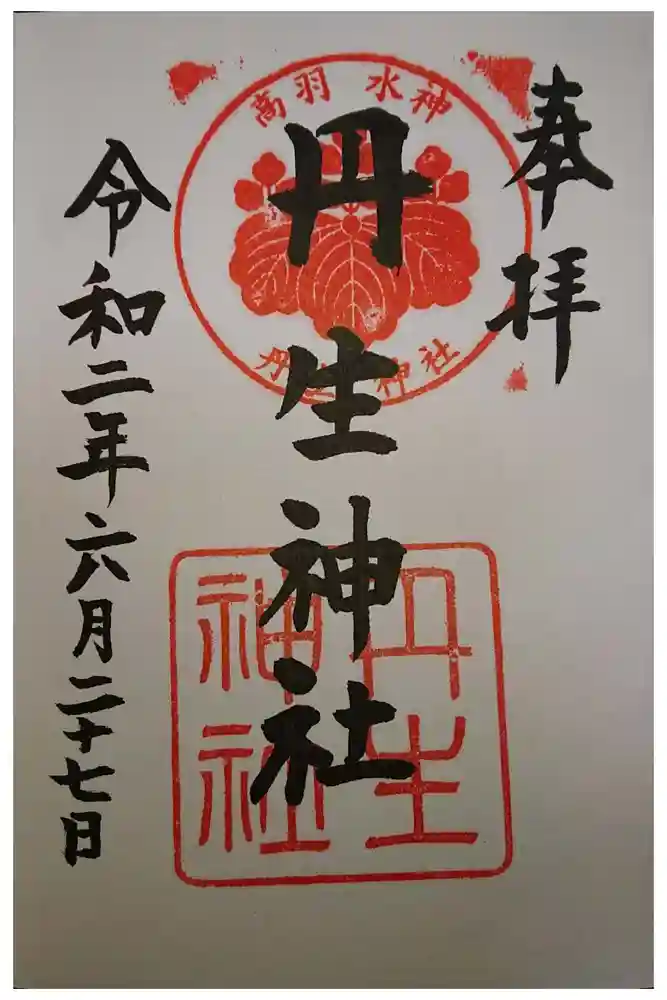 奉拝
高羽 水神
丹生神社
丹生神社
丹生
神社
令和二年六月二十七日